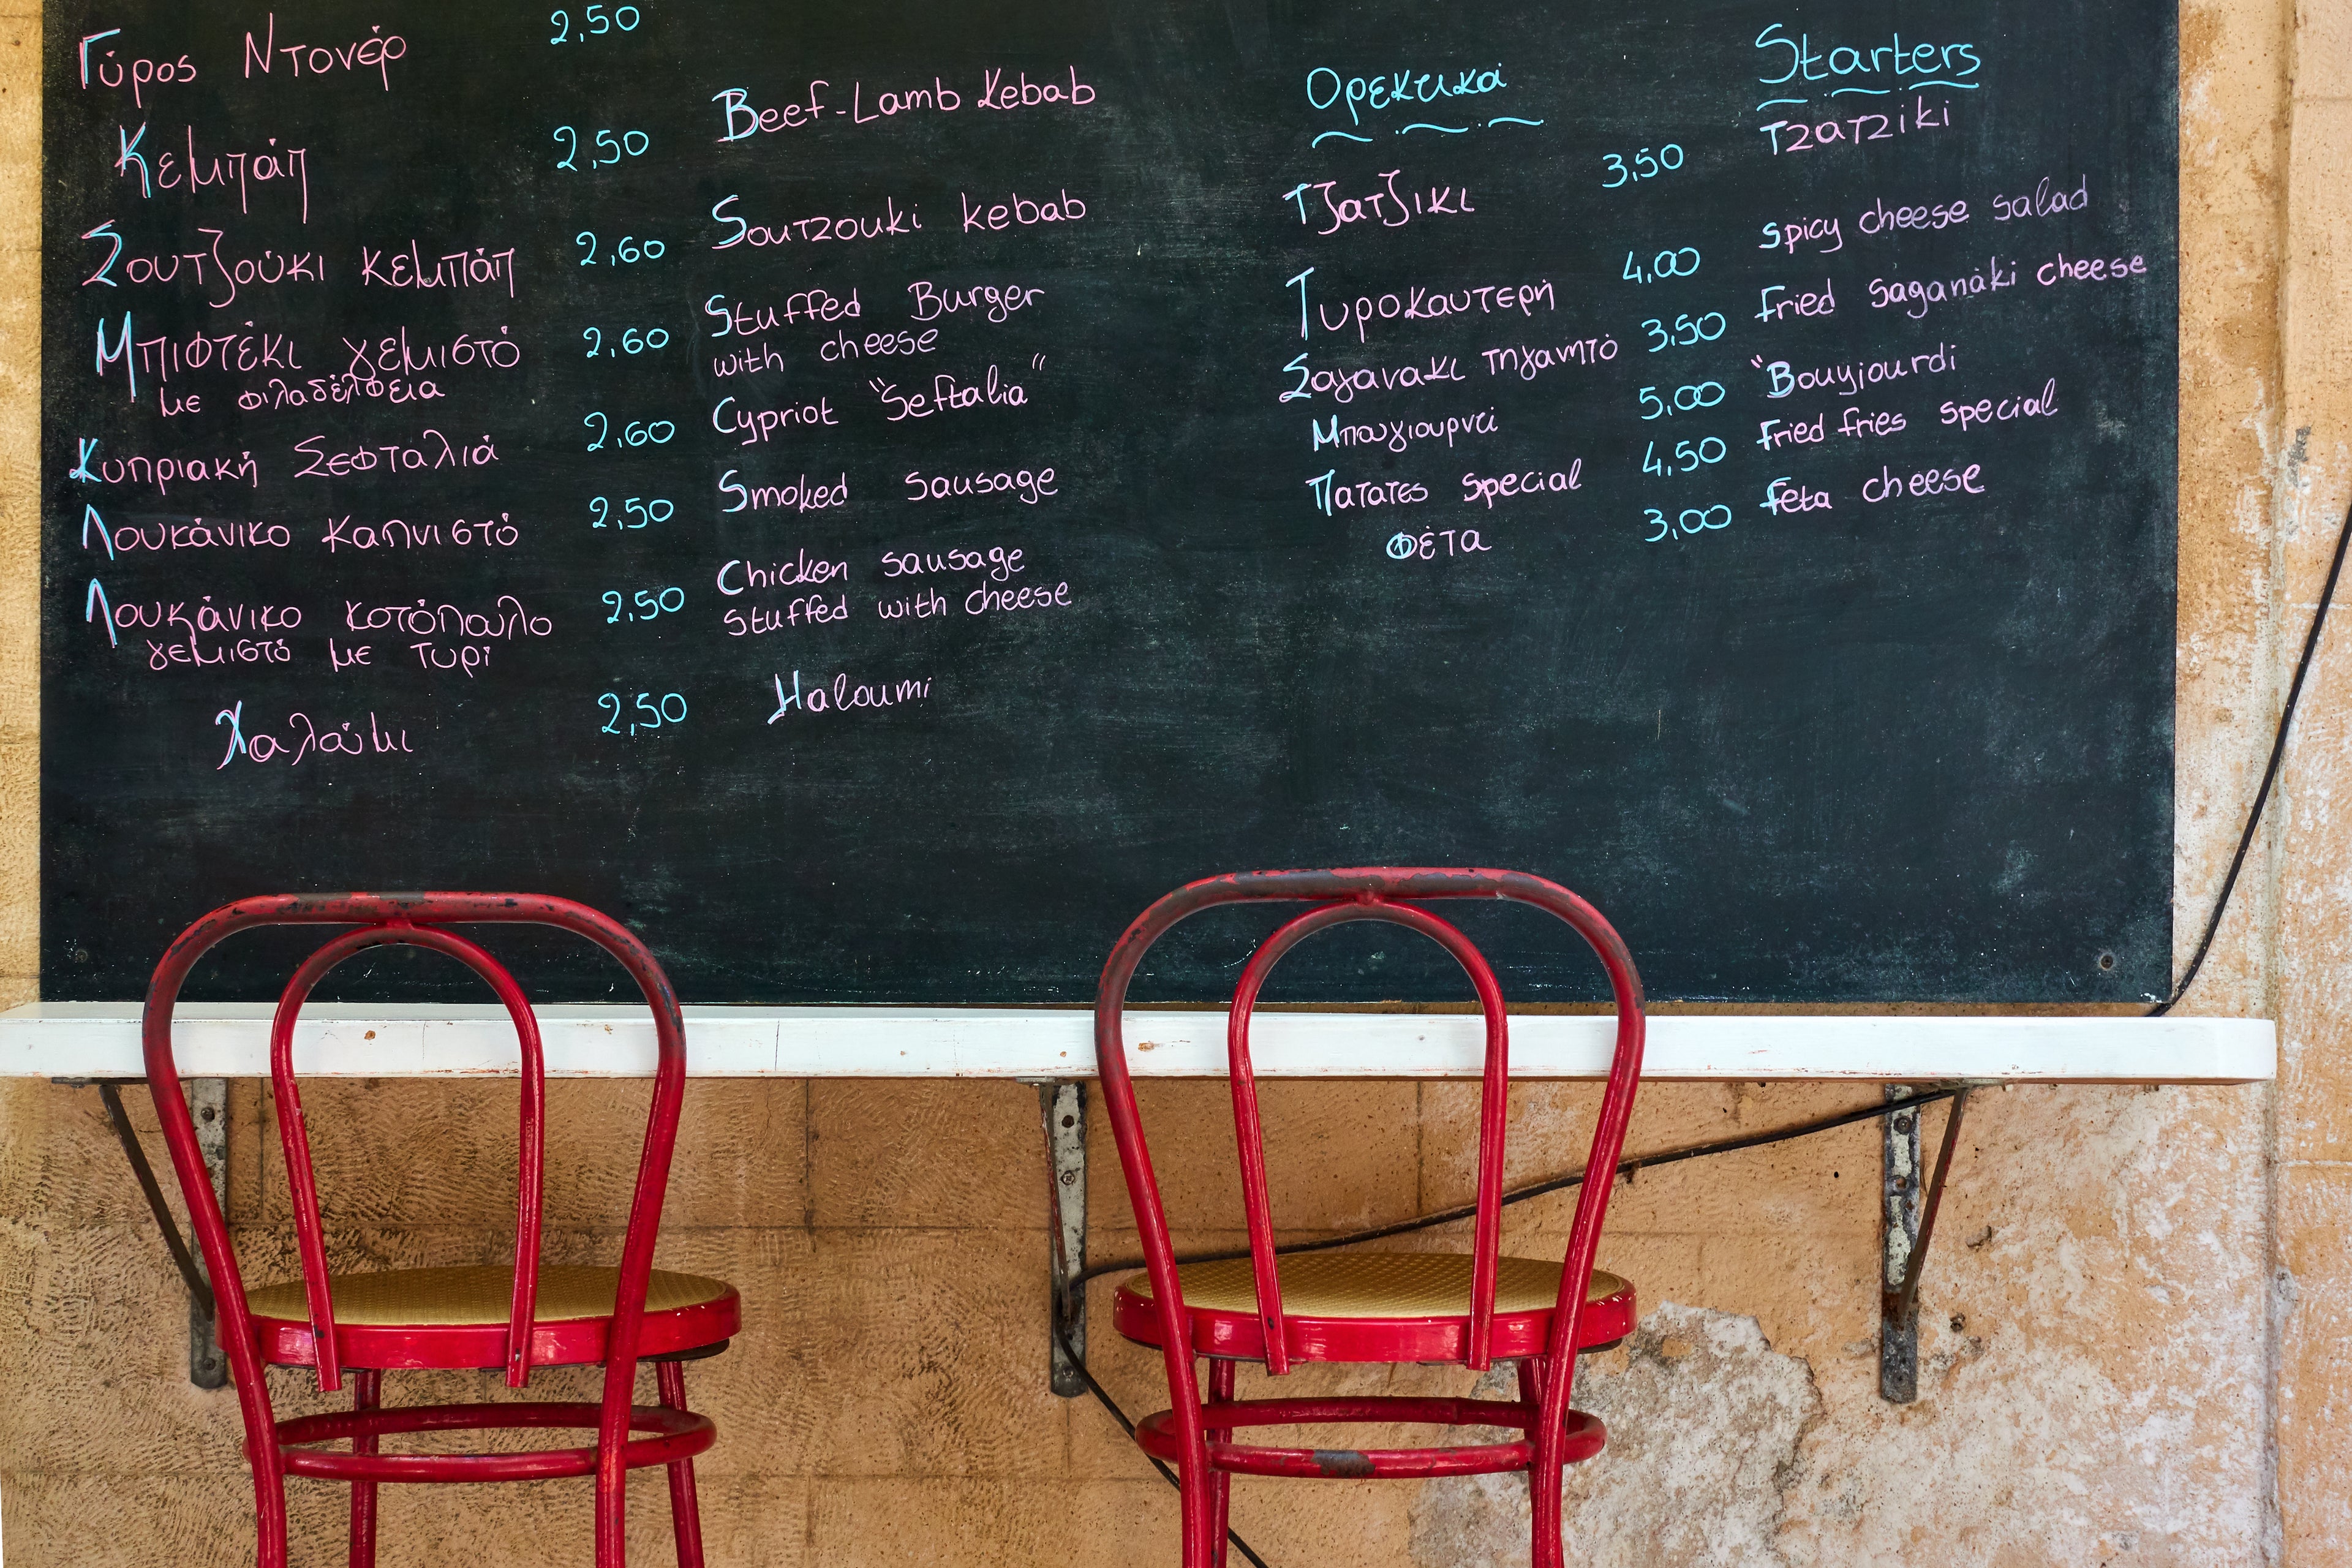 Γύρος Ντονέρ 2,50
Κεμπάπ 2,50 Beef-Lamb Kebab
Σουτζούκι κεμπάπ 2,60 Soutzouki kebab
Μπιφτέκι γεμιστό 2,60 Stuffed Burger
με φιλαδέλφεια with cheese
Κυπριακή Σεφταλιά 2,60 Cypriot "Seftalia"
Λουκάνικο καπνιστό 2,50 Smoked sausage
Λουκάνικο κοτόπουλο 2,50 Chicken sausage
γεμιστό με τυρί stuffed with cheese
Χαλούμι 2,50 Haloumi
Ορεκτικά Starters
Τζατζικι 3,50 Tzatziki
Τυροκαυτερή 4,00 spicy cheese salad
Σαγανακι τηγανητό 3,50 fried saganàki cheese
Μπουγιουρντί 5,00 "Bouyiourdi
Πατατες special 4,50 fried fries special
Φέτα 3,00 feta cheese